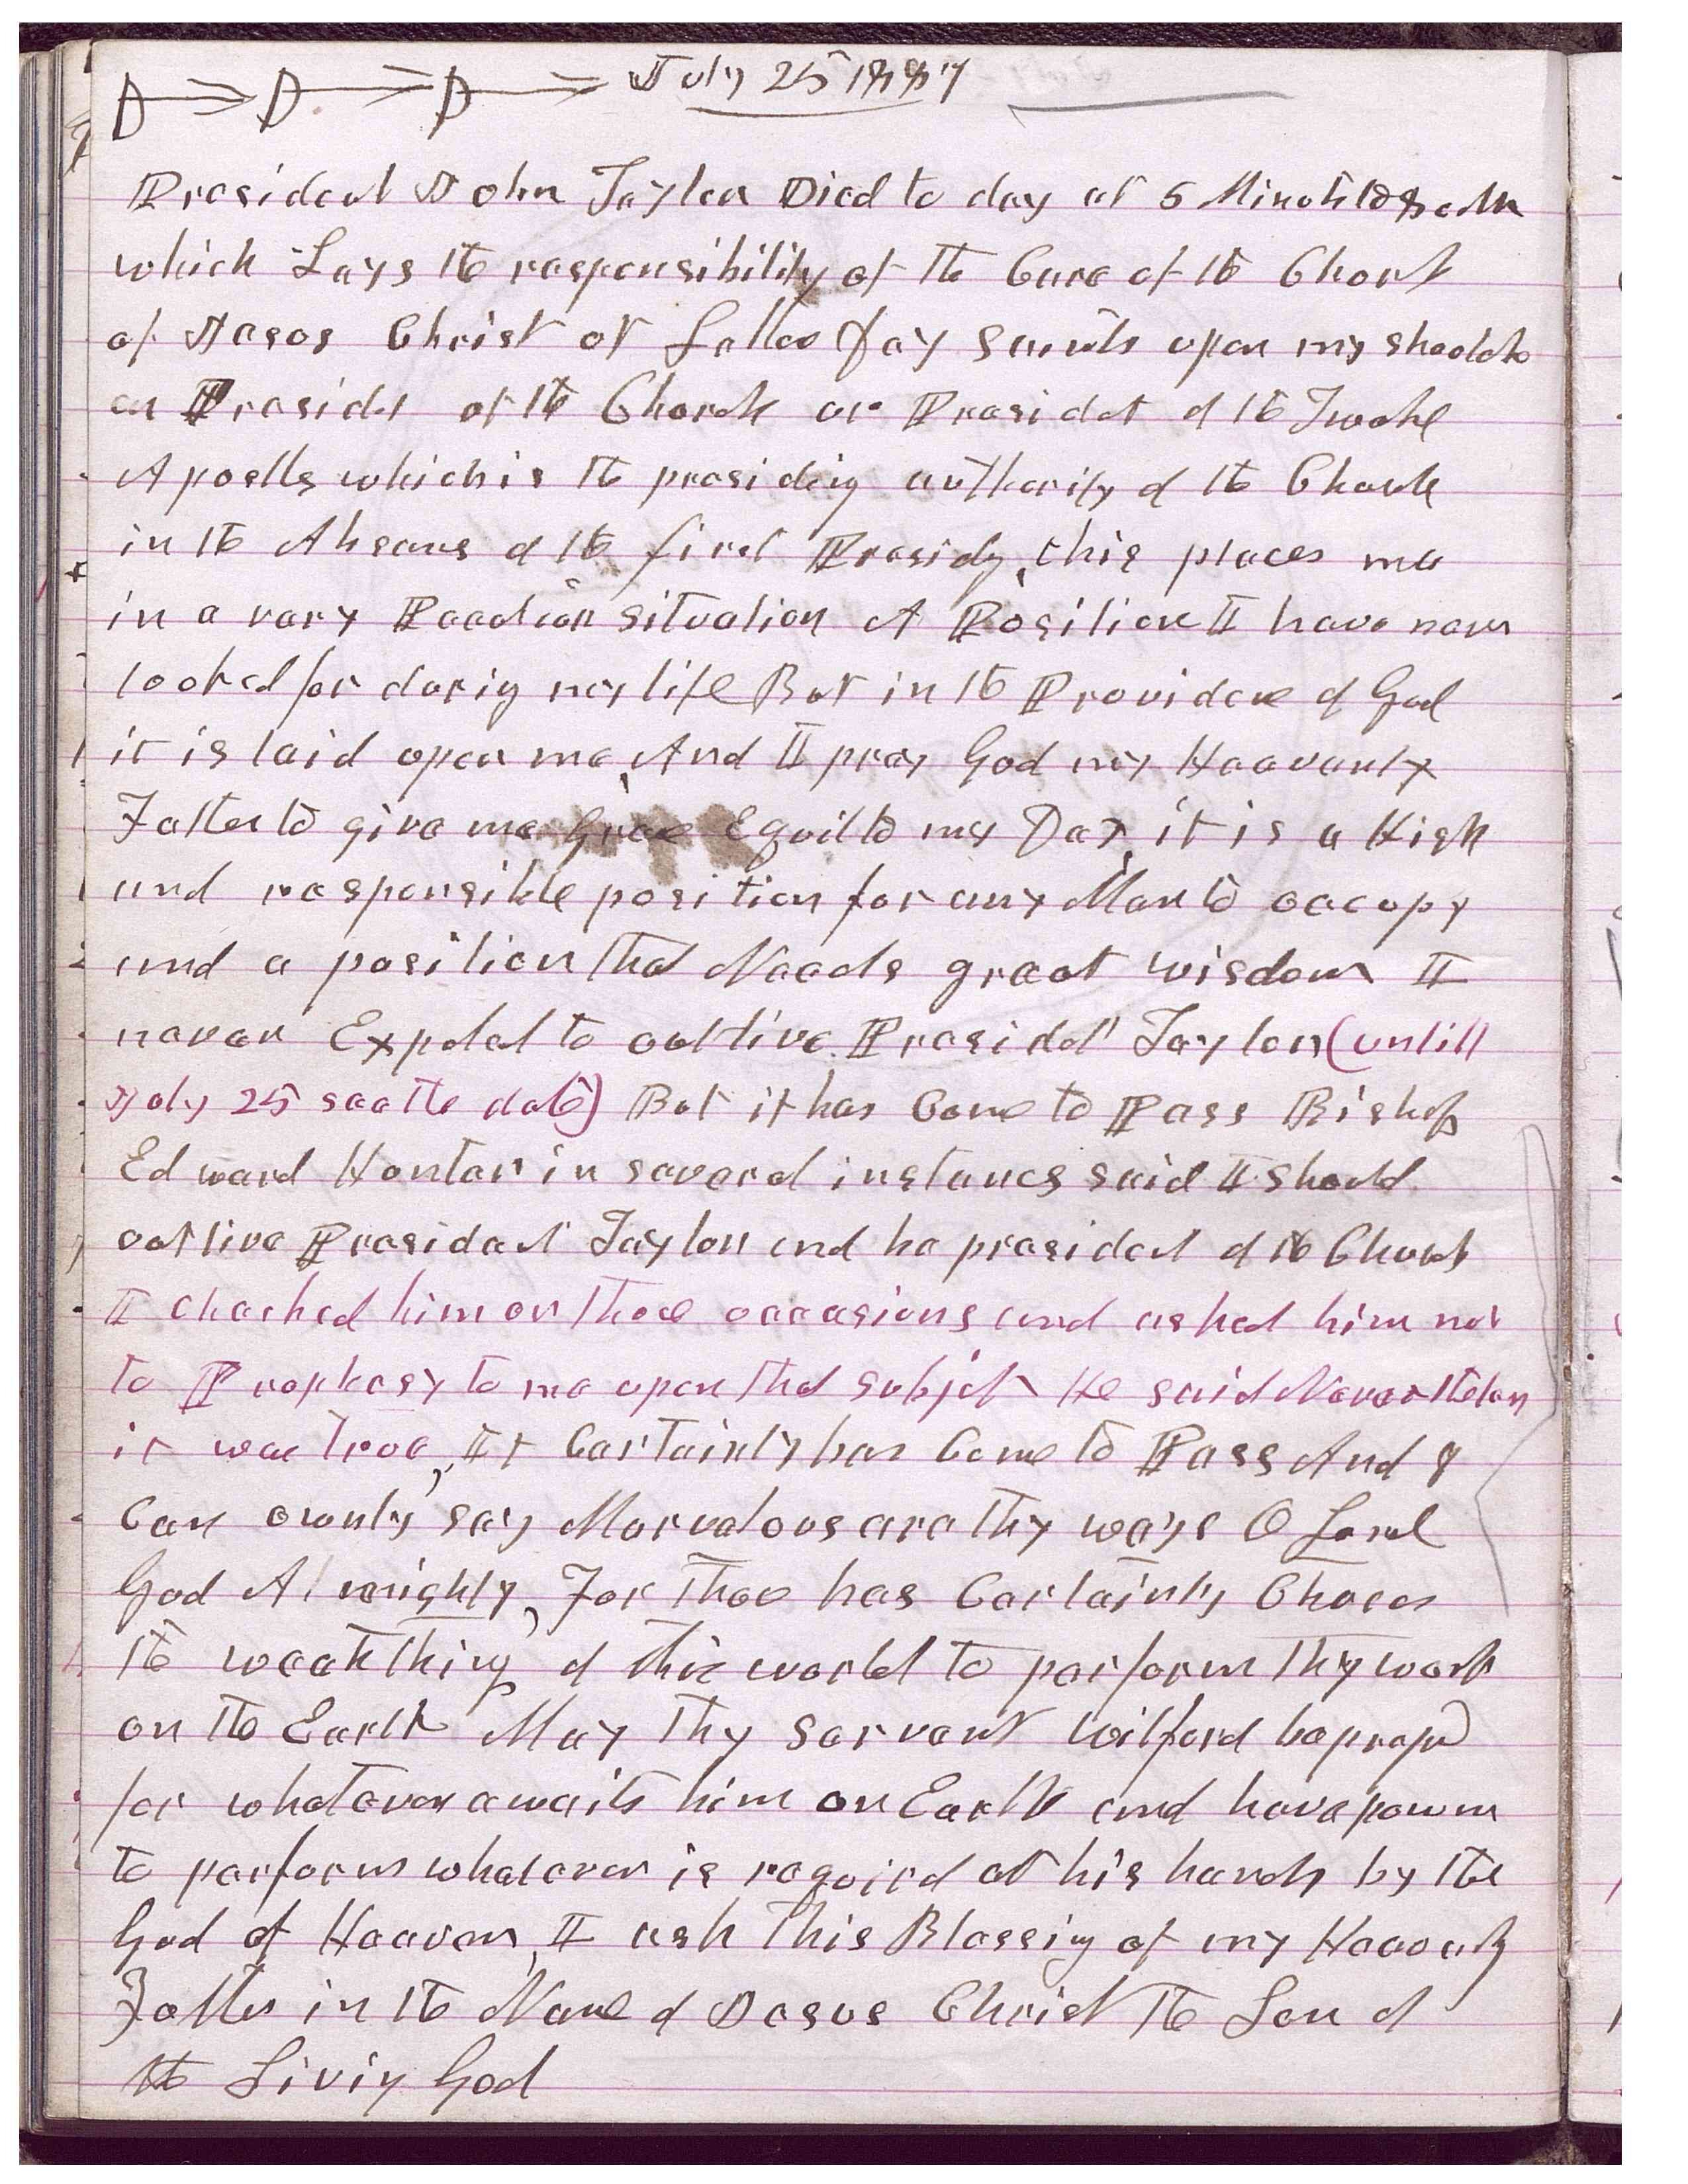 July 25 1887
President John Taylor Died to day at 5 Minutes to 8 oclk
which Lays the responsibility of the Care of the Church
of Jesus Christ of Latter Day Saints upon my shoulders
as President of the Church or President of the Twelve
Apostles which is the presiding authority of the Church
in the Absens of the first Presidcy, this places me
in a very Peculiar situation A Position I have never
looked for during my life But in the Providence of God
it is laid upon me, And I pray God my Heavenly
Father to give me Grace Equil to my Day, it is a High
and responsible position for any Man to occupy
and a position that Needs great wisdom I
never Expected to outlive President Taylor (untill
July 25 see the date) But it has Come to Pass Bishop
Edward Hunter in several instances said I should
outlive President Taylor and be president of the Church
I checked him on those occasions and asked him not
to Prophesy to me upon that subject He said Nevertheless
it was true, It Certainly has Come to Pass And I
Can ownly say Marvelous are thy ways O Lord
God Almighty, For thou has Certainly Chosen
the weak thing of this world to perform thy work
on the Earth May thy servant Wilford be prepared
for whatever awaits him on Earth and have power
to perform whatever is requird at his hands by the
God of Heaven, I ask this Blessing of my Heavenly
Father in the Name of Jesus Christ the Son of
the Living God